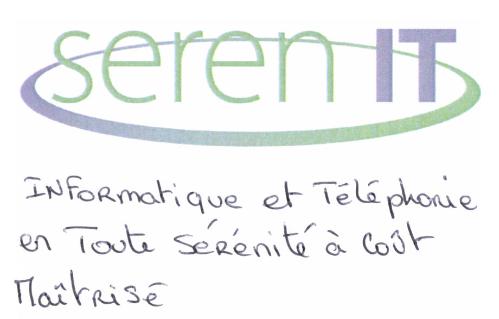 seren IT
INFormatique et Téléphonie
en Toute SéRéNité à Coût
MaîtRisé